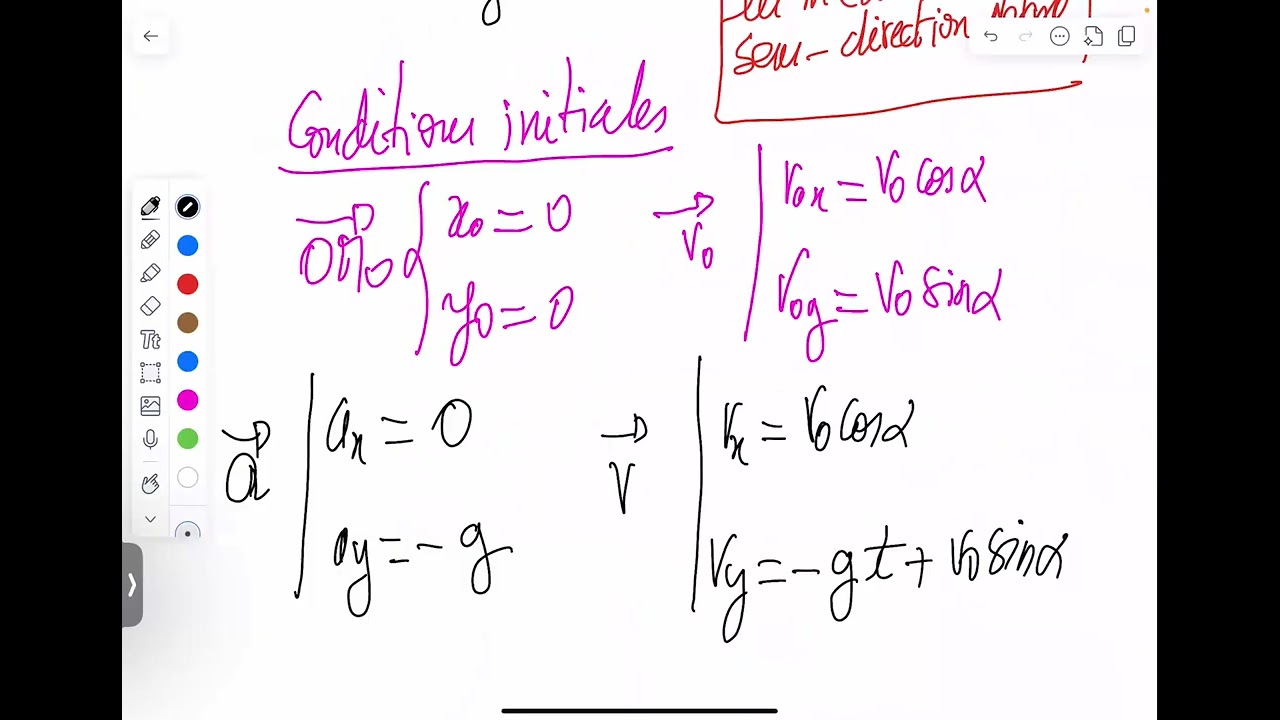 sens-direction
Conditions initiales
OM₀ { x₀ = 0
y₀ = 0
V₀ | V₀x = V₀ cosα
V₀y = V₀ sinα
a | ax = 0
ay = -g
V | Vx = V₀ cosα
Vy = -gt + V₀ sinα
Tt